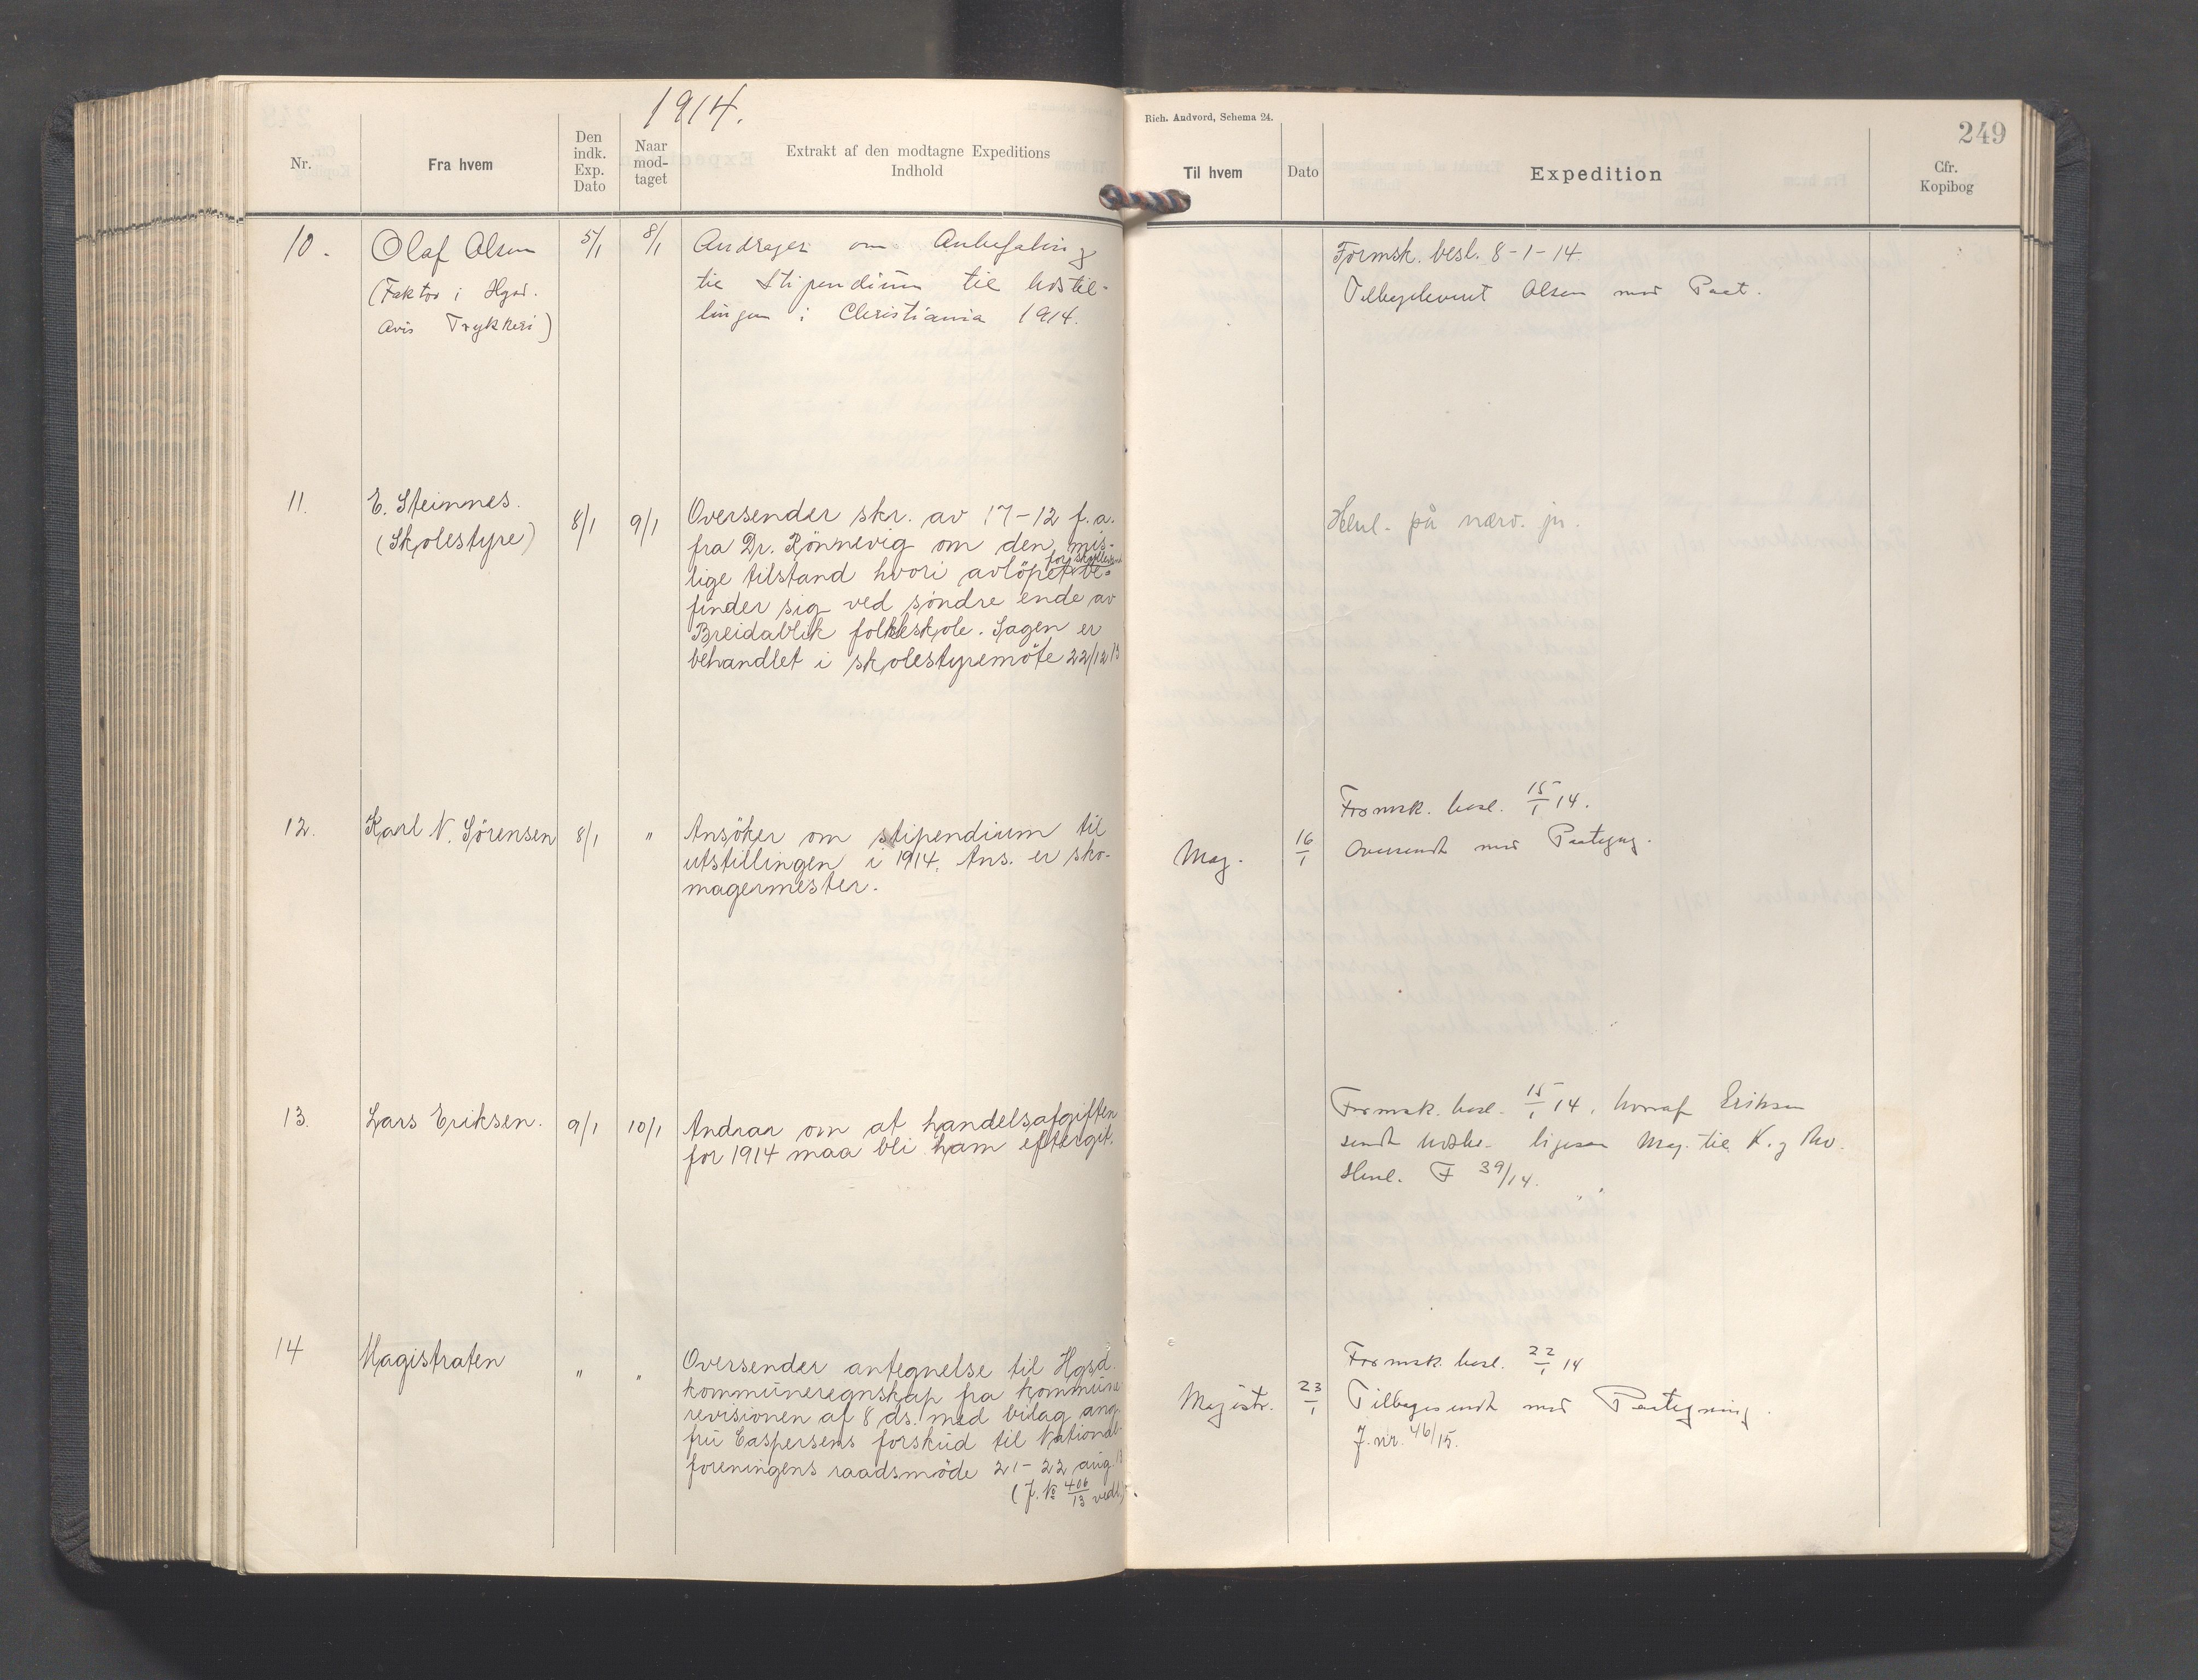 1914.
Rich. Andvord, Schema 24.
249
Nr.
Fra hvem
Den indk. Exp. Dato
Naar mod- taget
Extrakt af den modtagne Expeditions Indhold
Til hvem
Dato
Expedition
Cfr. Kopibog
10.
Olaf Olsen
(Faktor i Hgsd.
Avis Trykkeri)
5/1
8/1
Andrager om Anbefaling
til Stipendium til Udstil-
lingen i Christiania 1914.
Formsk. besl. 8-1-14
Tilbageleveret Olsen med Paat.
11.
E. Steinnes.
(Skolestyre)
8/1
9/1
Oversender skr. av 17-12 f.a.
fra Dr. Rönnevig om den mis-
lige tilstand hvori avlöpet be-
finder sig ved söndre ende av
Breidablik folkeskole. Sagen er
behandlet i skolestyremöte 22/12 13
Henl. på nærv. jr.
12.
Karl N. Sörensen
8/1
"
Ansöker om stipendium til
utstillingen i 1914. Ans. er sko-
magermester.
Mag.
16/1
Formsk. besl. 15/1 14.
Oversendt med Paategng.
13.
Lars Eriksen.
9/1
10/1
Andraar om at handelsafgiften
for 1914 maa bli ham eftergit.
Formsk. besl. 15/1 14, hvoraf Eriksen
sendt Udskr. ligesaa Mag. til K. og
Henl. F 39/14.
14
Magistraten
"
"
Oversender antegnelse til Hgsd.
kommuneregnskap fra kommune
revisionen af 8 ds. med bilag ang.
fru Caspersens forskud til National-
foreningens raadsmöde 21-22 aug. 13
(J. № 406/13 vedl.)
Magistr.
23/1
Formsk. besl. 22/1 14
Tilbagesendt med Paategning.
J. nr. 46/15.